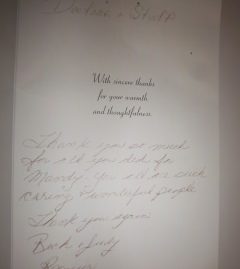 Doctors & Staff
With sincere thanks
for your warmth
and thoughtfulness.
Thank you so much
for all you did for
Mandy. You all are such
caring & wonderful people
Thank you again
Buck & Judy